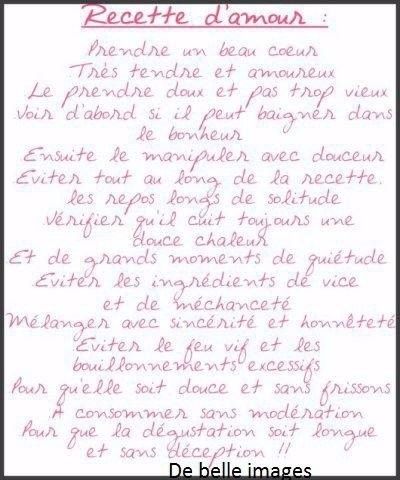 Recette d'amour :
Prendre un beau coeur
Très tendre et amoureux
Le prendre doux et pas trop vieux
Voir d'abord si il peut baigner dans
le bonheur
Ensuite le manipuler avec douceur
Eviter tout au long de la recette.
les repos longs de solitude
Vérifier qu'il cuit toujours une
douce chaleur
Et de grands moments de quiétude
Eviter les ingrédients de vice
et de méchanceté
Mélanger avec sincérité et honnêteté
Eviter le feu vif et les
bouillonnements excessifs
Pour qu'elle soit douce et sans frissons
A consommer sans modération
Pour que la dégustation soit longue
et sans déception !!
De belle images